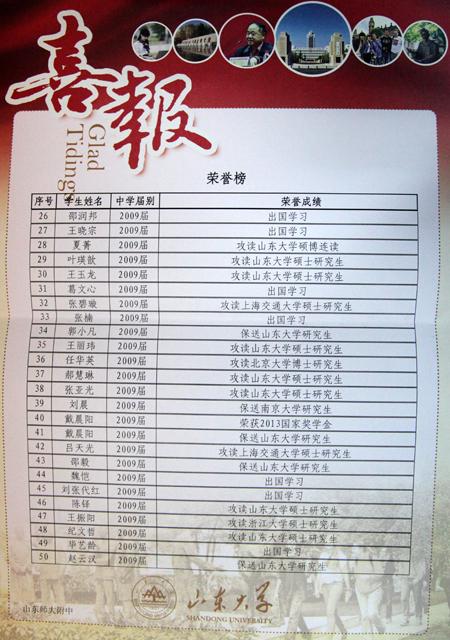 喜報
Glad
Tidings
荣誉榜
序号 学生姓名 中学届别 荣誉成绩
26 邵润邦 2009届 出国学习
27 王晓宗 2009届 出国学习
28 夏菁 2009届 攻读山东大学硕博连读
29 叶瑛歆 2009届 攻读山东大学硕士研究生
30 王玉龙 2009届 攻读山东大学硕士研究生
31 葛文心 2009届 出国学习
32 张碧璇 2009届 攻读上海交通大学硕士研究生
33 张楠 2009届 出国学习
34 郭小凡 2009届 保送山东大学研究生
35 王丽玮 2009届 攻读山东大学硕士研究生
36 任华英 2009届 攻读北京大学博士研究生
37 郝慧琳 2009届 攻读山东大学硕士研究生
38 张亚光 2009届 攻读山东大学硕士研究生
39 刘晨 2009届 保送南京大学研究生
40 戴晨阳 2009届 荣获2013国家奖学金
41 戴晨阳 2009届 保送山东大学研究生
42 吕天光 2009届 攻读上海交通大学硕士研究生
43 邵毅 2009届 保送山东大学研究生
44 魏恺 2009届 出国学习
45 刘张代红 2009届 出国学习
46 陈铎 2009届 攻读山东大学硕士研究生
47 王振阳 2009届 攻读浙江大学硕士研究生
48 纪文哲 2009届 攻读山东大学硕士研究生
49 毕艺龄 2009届 出国学习
50 赵云汉 2009届 保送山东大学研究生
山东大学
SHANDONG UNIVERSITY
山东师大附中